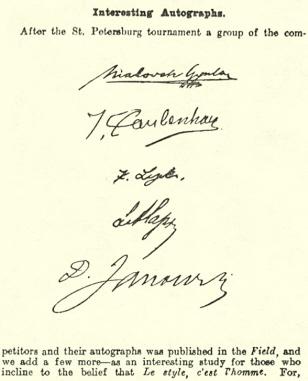 Interesting Autographs.
After the St. Petersburg tournament a group of the com-
J. Taubenhaus
D. Janowski
petitors and their autographs was published in the Field, and
we add a few more—as an interesting study for those who
incline to the belief that Le style, c'est l'homme. For,